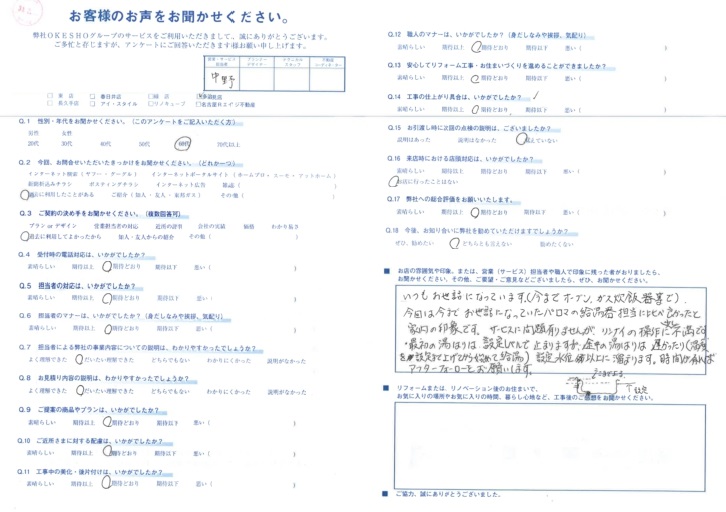 お客様のお声をお聞かせください。
弊社OKESHOグループのサービスをご利用いただきまして、誠にありがとうございます。
ご多忙と存じますが、アンケートにご回答いただきます様お願い申し上げます。
中野
春日井店
長久手店 アイ・スタイル リノキューブ 名古屋Rエージ不動産
Q.1 性別・年代をお聞かせください。（このアンケートをご記入いただく方）
男性 女性
20代 30代 40代 50代 60代 70代以上
Q.2 今回、お問合せいただいたきっかけをお聞かせください。（どれか一つ）
インターネット検索（ヤフー・グーグル） インターネットポータルサイト（ホームプロ・
新聞折込みチラシ ポスティングチラシ インターネット広告 雑誌（ ）
過去に利用したことがある ご紹介（知人・友人・東邦ガス） その他（ ）
Q.3 ご契約の決め手をお聞かせください。（複数回答可）
プラン or デザイン 営業担当者の対応 近所の評判 会社の実績 価格 わかり易さ
過去に利用してよかったから 知人・友人からの紹介 その他（ ）
Q.4 受付時の電話対応は、いかがでしたか？
素晴らしい 期待以上 期待どおり 期待以下 悪い（ ）
Q.5 担当者の対応は、いかがでしたか？
素晴らしい 期待以上 期待どおり 期待以下 悪い（ ）
Q.6 担当者のマナーは、いかがでしたか？（身だしなみや挨拶、気配り）
素晴らしい 期待以上 期待どおり 期待以下 悪い（ ）
Q.7 担当者による弊社の事業内容についての説明は、わかりやすかったでしょうか？
よく理解できた だいたい理解できた どちらでもない わかりにくかった 説明がなかった
Q.8 お見積り内容の説明は、わかりやすかったでしょうか？
よく理解できた だいたい理解できた どちらでもない わかりにくかった 説明がなかった
Q.9 ご提案の商品やプランは、いかがでしたか？
素晴らしい 期待以上 期待どおり 期待以下 悪い（ ）
Q.10 ご近所さまに対する配慮は、いかがでしたか？
素晴らしい 期待以上 期待どおり 期待以下 悪い（ ）
Q.11 工事中の美化・後片付けは、いかがでしたか？
素晴らしい 期待以上 期待どおり 期待以下 悪い（ ）
Q.12 職人のマナーは、いかがでしたか？（身だしなみや挨拶、気配り）
素晴らしい 期待以上 期待どおり 期待以下 悪い（ ）
Q.13 安心してリフォーム工事・お住まいづくりを進めることができましたか？
素晴らしい 期待以上 期待どおり 期待以下 悪い（ ）
Q.14 工事の仕上がり具合は、いかがでしたか？
素晴らしい 期待以上 期待どおり 期待以下 悪い（ ）
Q.15 お引渡し時に2回の点検の説明は、ございましたか？
説明はあった 説明はなかった 覚えていない
Q.16 来店時における店頭対応は、いかがでしたか？
素晴らしい 期待以上 期待どおり 期待以下 悪い（ ）
お店に行ったことはない
Q.17 弊社への総合評価をお願いいたします。
素晴らしい 期待以上 期待どおり 期待以下 悪い（ ）
Q.18 今後、お知り合いに弊社を勧めていただけますでしょうか？
ぜひ、勧めたい どちらとも言えない 勧めたくない
■ お店の雰囲気や印象、または、営業（サービス）担当者や職人で印象に残った者がおりましたら、
お聞かせください。その他、ご要望・ご意見などございましたら、ぜひ、お聞かせください。
いつもお世話になっています（今までオーブン、ガス炊飯器等で）
今回は今までお世話になっていたパロマの給湯器
印象です。サービスに問題ありませんが、リンナイの操作に不満です
・最初の湯はりは設定で止まりますが、途中の湯はりは
設定を上げてから 給湯）設定水位線以上に溜まります。時間が
アフターフォローをお願いします。
設定
■ リフォームまたは、リノベーション後のお住まいで、
お気に入りの場所やお気に入りの時間、暮らし心地など、工事後のご感想をお聞かせください。
■ ご協力、誠にありがとうございました。